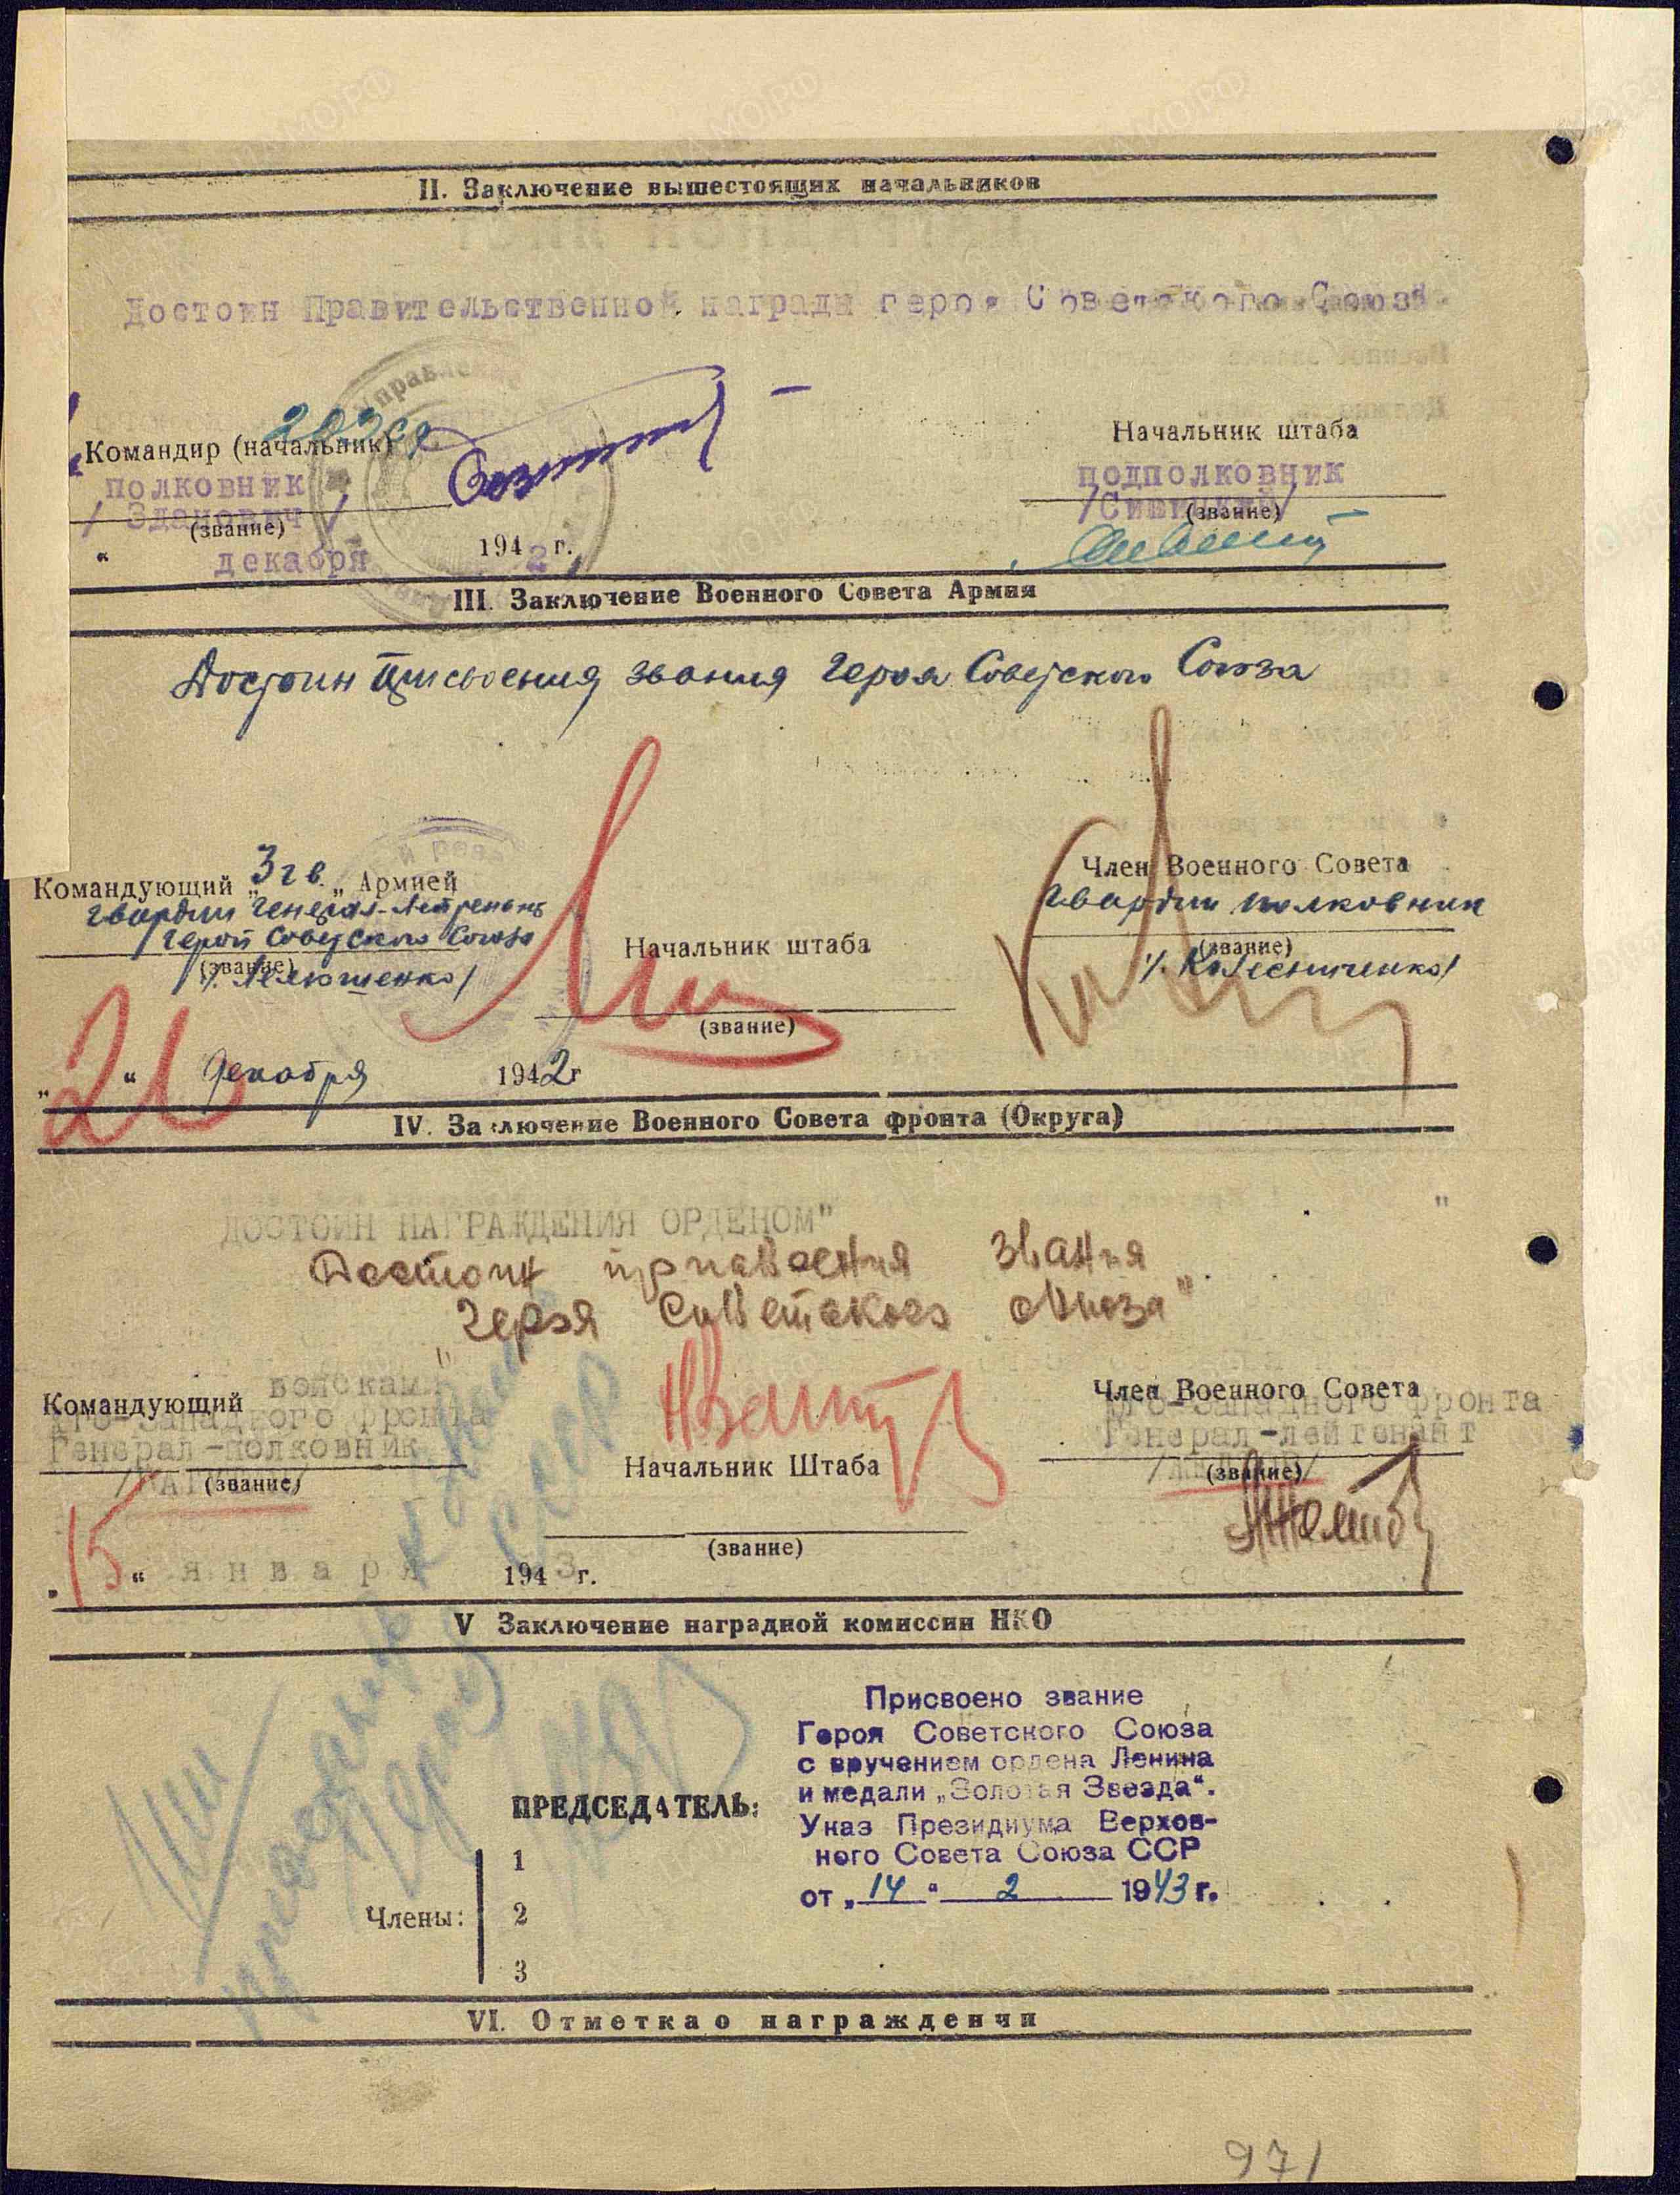 II. Заключение вышестоящих начальников
Достоин Правительственной награды героя Советского Союза.
Командир (начальник) 203 сд
полковник
/Зданович/
(звание)
" декабря 1942 г.
Начальник штаба
подполковник
(звание)
III. Заключение Военного Совета Армии
Достоин присвоения звания Героя Советского Союза
Командующий „3 гв.„ Армией
гвардии генерал-лейтенант
Герой Советского Союза
(звание)
/Лелюшенко/
Начальник штаба
(звание)
Член Военного Совета
гвардии полковник
(звание)
/Колесниченко/
„ " декабря 1942 г
IV. Заключение Военного Совета фронта (Округа)
ДОСТОИН НАГРАЖДЕНИЯ ОРДЕНОМ" "
Достоин присвоения звания
"Героя Советского Союза"
Командующий войсками
Юго-Западного фронта
Генерал-полковник
(звание)
Начальник Штаба
(звание)
Член Военного Совета
Юго-Западного фронта
Генерал-лейтенант
(звание)
„15" января 1943 г.
V Заключение наградной комиссии НКО
Присвоено звание
Героя Советского Союза
с вручением ордена Ленина
и медали „Золотая Звезда“.
Указ Президиума Верхов-
ного Совета Союза ССР
от „14" 2 1943 г.
ПРЕДСЕДАТЕЛЬ:
Члены:
1
2
3
VI. Отметка о награждении
971